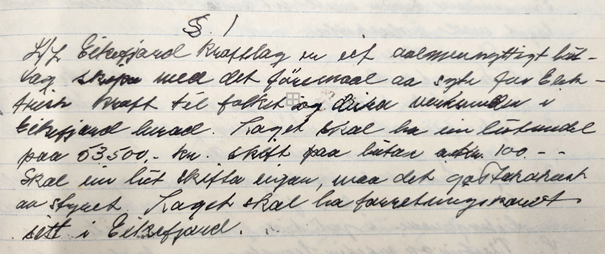 §. 1
L/L Eikefjord Kraftlag er eit aalmennyttigt lut-
lag skapa med det föremaal aa syte for Elek-
trisk Kraft til folket og
Eikefjord herad. Laget skal ha ein luthendel
paa 53,500,- kr. skift paa lutar a kr. 100.--
Skal ein lut skifta eigar, maa det godtakast
av styret. Laget skal ha forretningskontor
sitt i Eikefjord.